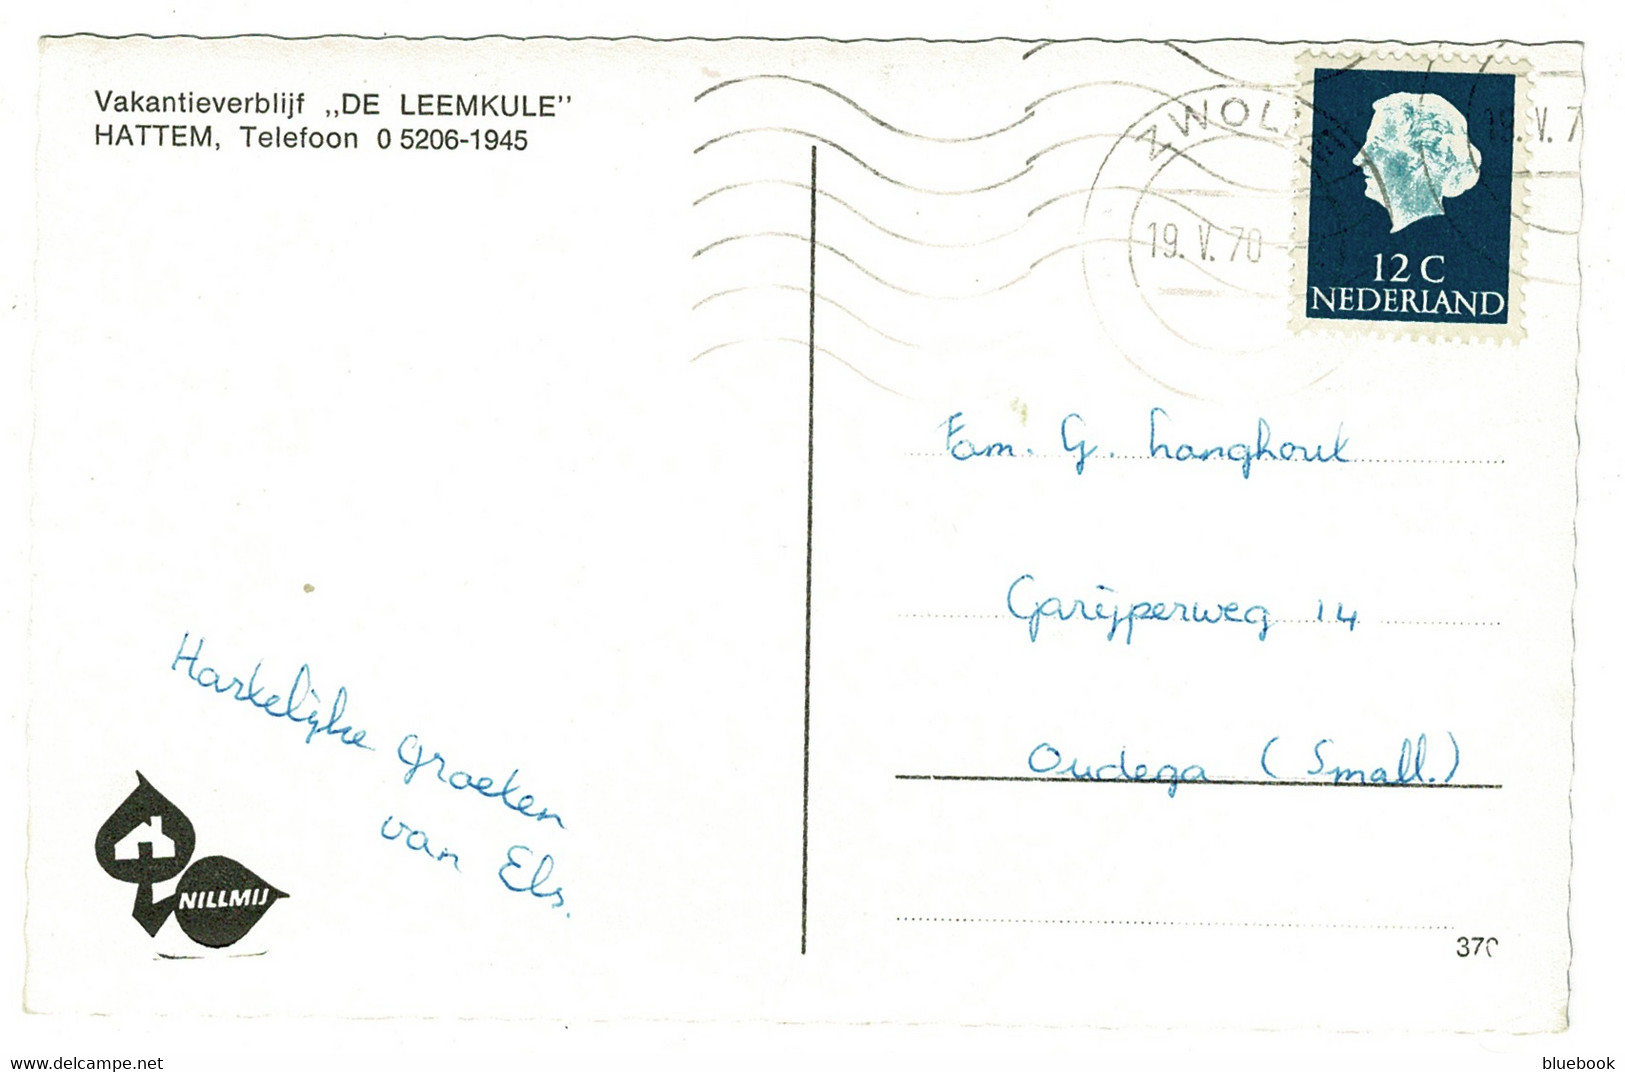 Vakantieverblijf „DE LEEMKULE”
HATTEM, Telefoon 0 5206-1945
ZWOL
19. V. 70
19. V. 7
12 C
NEDERLAND
Fam. G. Langhout
Garijperweg 14
Oudega (Small.)
Hartelijke groeten
van Els.
NILLMIJ
370
delcampe.net
bluebook